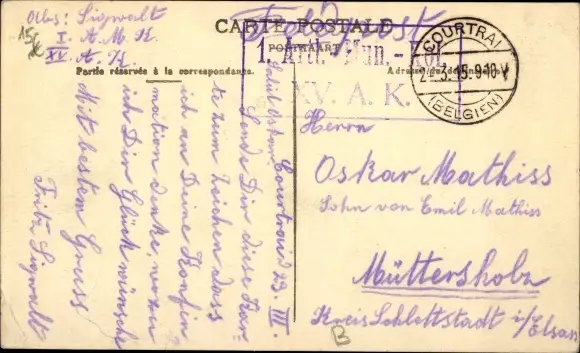 Abs: Sigwalt
I. A. M. K.
XV. A. K.
CARTE POSTALE
Feldpost
POSTKAART
1. Artl.-Mun.-Kol.
XV. A. K.
COURTRAI
2-.3.15.9-10V
(BELGIEN)
Partie réservée à la correspondance.
Courtrai 23. III.
Salut Oskar
Sende Dir diese Kar-
te zum Zeichen dass
ich an Deine Konfir-
mation denke, wozu
ich Dir Glück wünsche
Mit bestem Gruss
Fritz Sigwalt
Herrn
Oskar Mathiss
Sohn von Emil Mathiss
Müttersholz
Kreis Schlettstadt i/Elsass